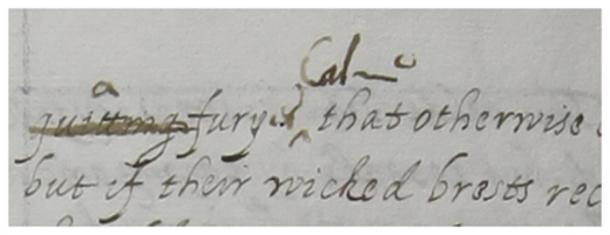 a Calme
quitting fury that otherwise
but if their wicked brests rec